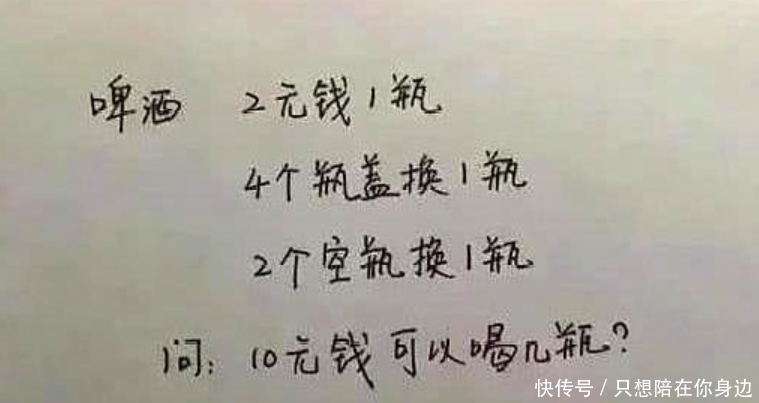 啤酒 2元钱1瓶
4个瓶盖换1瓶
2个空瓶换1瓶
问:10元钱可以喝几瓶?
快传号/只想陪在你身边